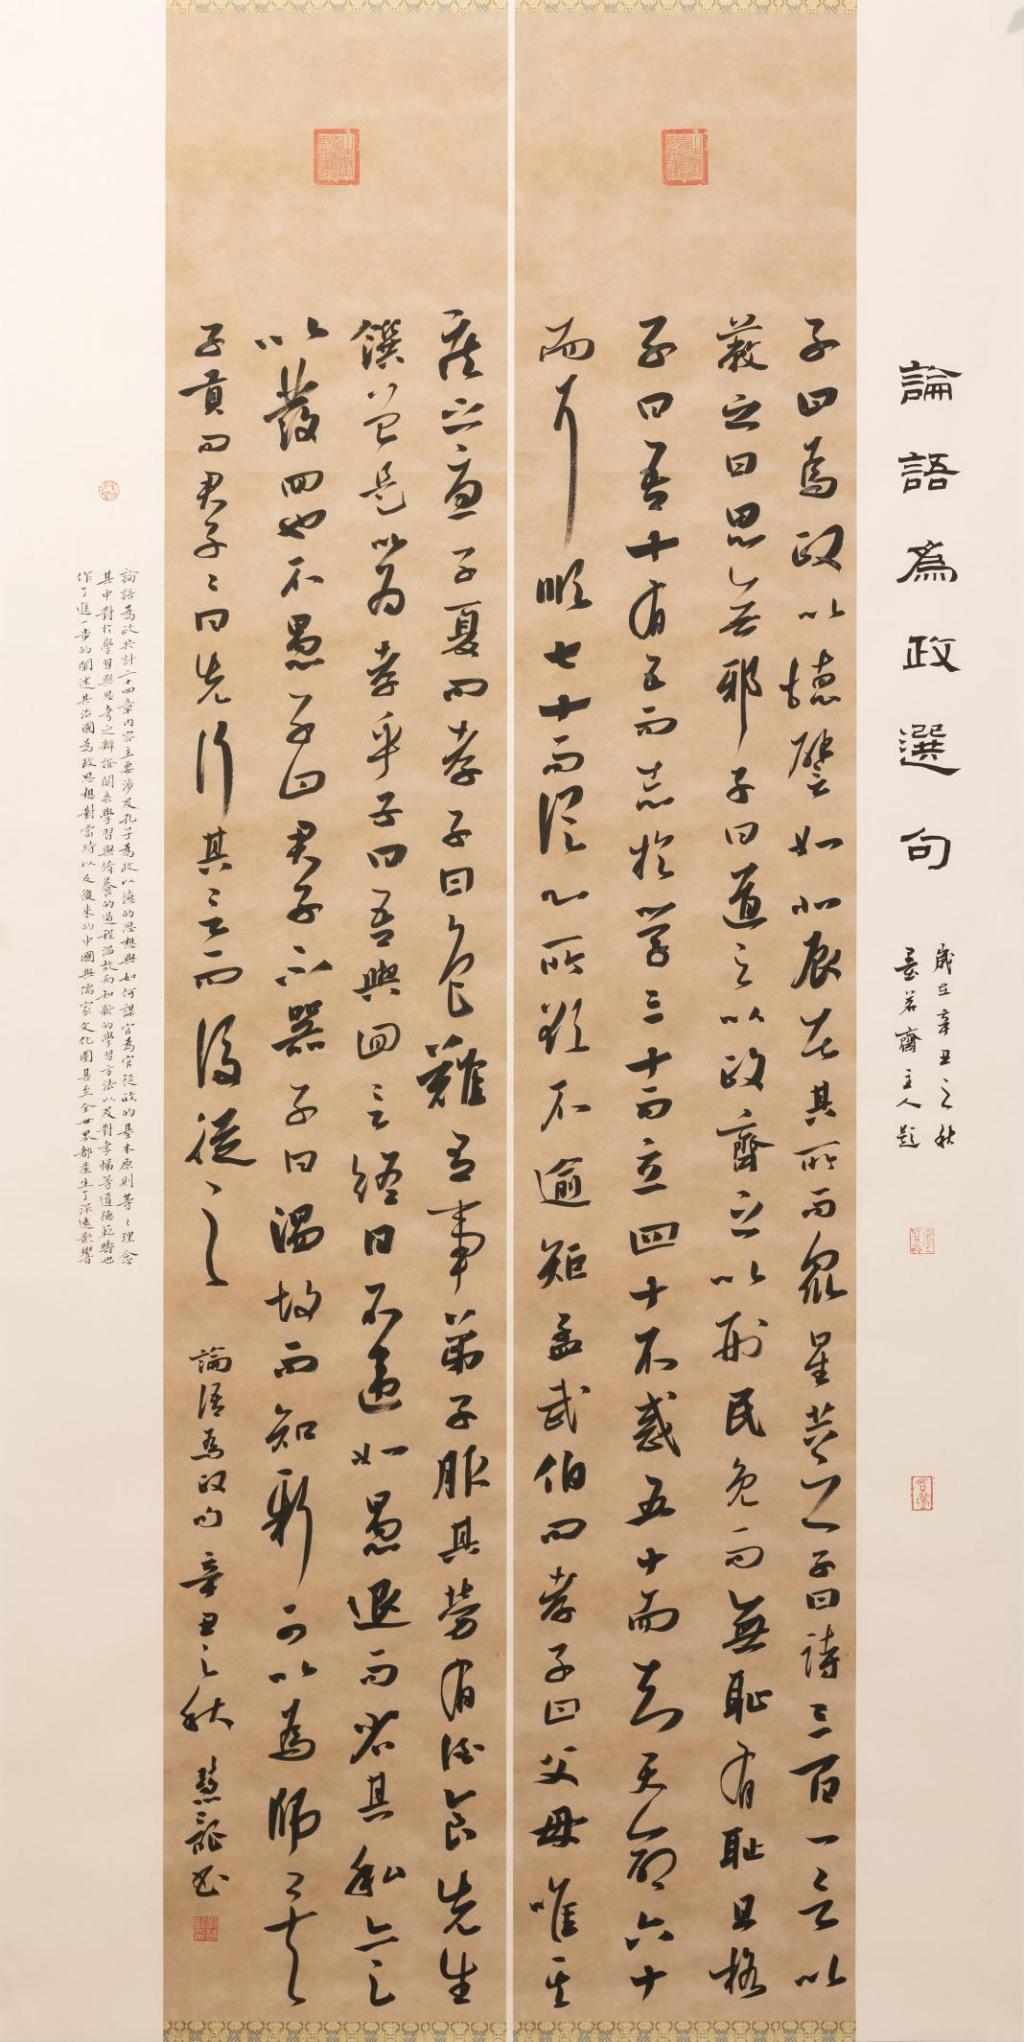 論語為政選句
歲在辛丑之秋
墨若齋主人題
子曰為政以德譬如北辰居其所而眾星共之子曰詩三百一言以
蔽之曰思無邪子曰道之以政齊之以刑民免而無恥有恥且格
子曰吾十有五而志於學三十而立四十不惑五十而知天命六十
而耳順七十而從心所欲不逾矩孟武伯問孝子曰父母唯其
疾之憂子夏問孝子曰色難有事弟子服其勞有酒食先生
饌曾是以為孝乎子曰吾與回言終日不違如愚退而省其私亦足
以發回也不愚子曰君子不器子曰溫故而知新可以為師矣
子貢問君子子曰先行其言而後從之
論語為政句辛丑之秋慧龍書
論語為政共計二十四章內容主要涉及孔子為政以德的思想與如何謀官為官從政的基本原則等等理念
其中對於學習與思考之辯證關系學習與修養的過程溫故而知新的學習方法以及對孝悌等道德範疇也
作了進一步的闡述其治國為政思想對當時以及後來的中國與儒家文化圈甚至全世界都產生了深遠影響